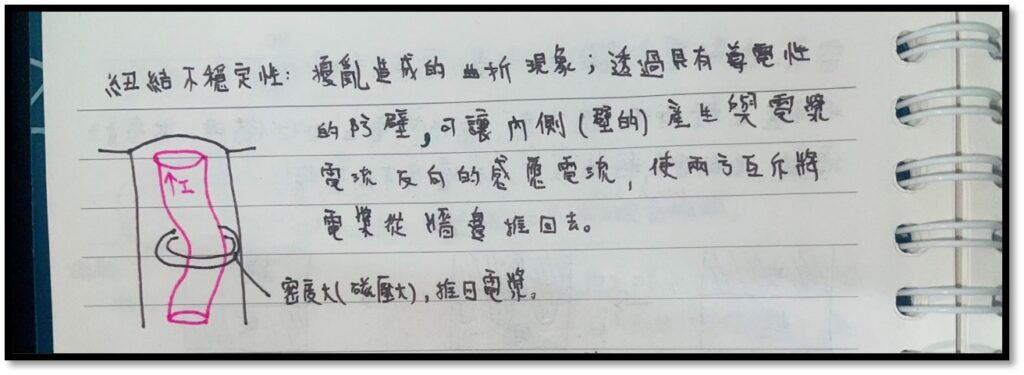 紐結不穩定性：擾亂造成的曲折現象；透過具有導電性
的防壁，可讓內側(壁的)產生與電漿
電流反向的感應電流，使兩方互斥將
電漿從牆邊推回去。
↑I
密度大(磁壓大)，推回電漿。